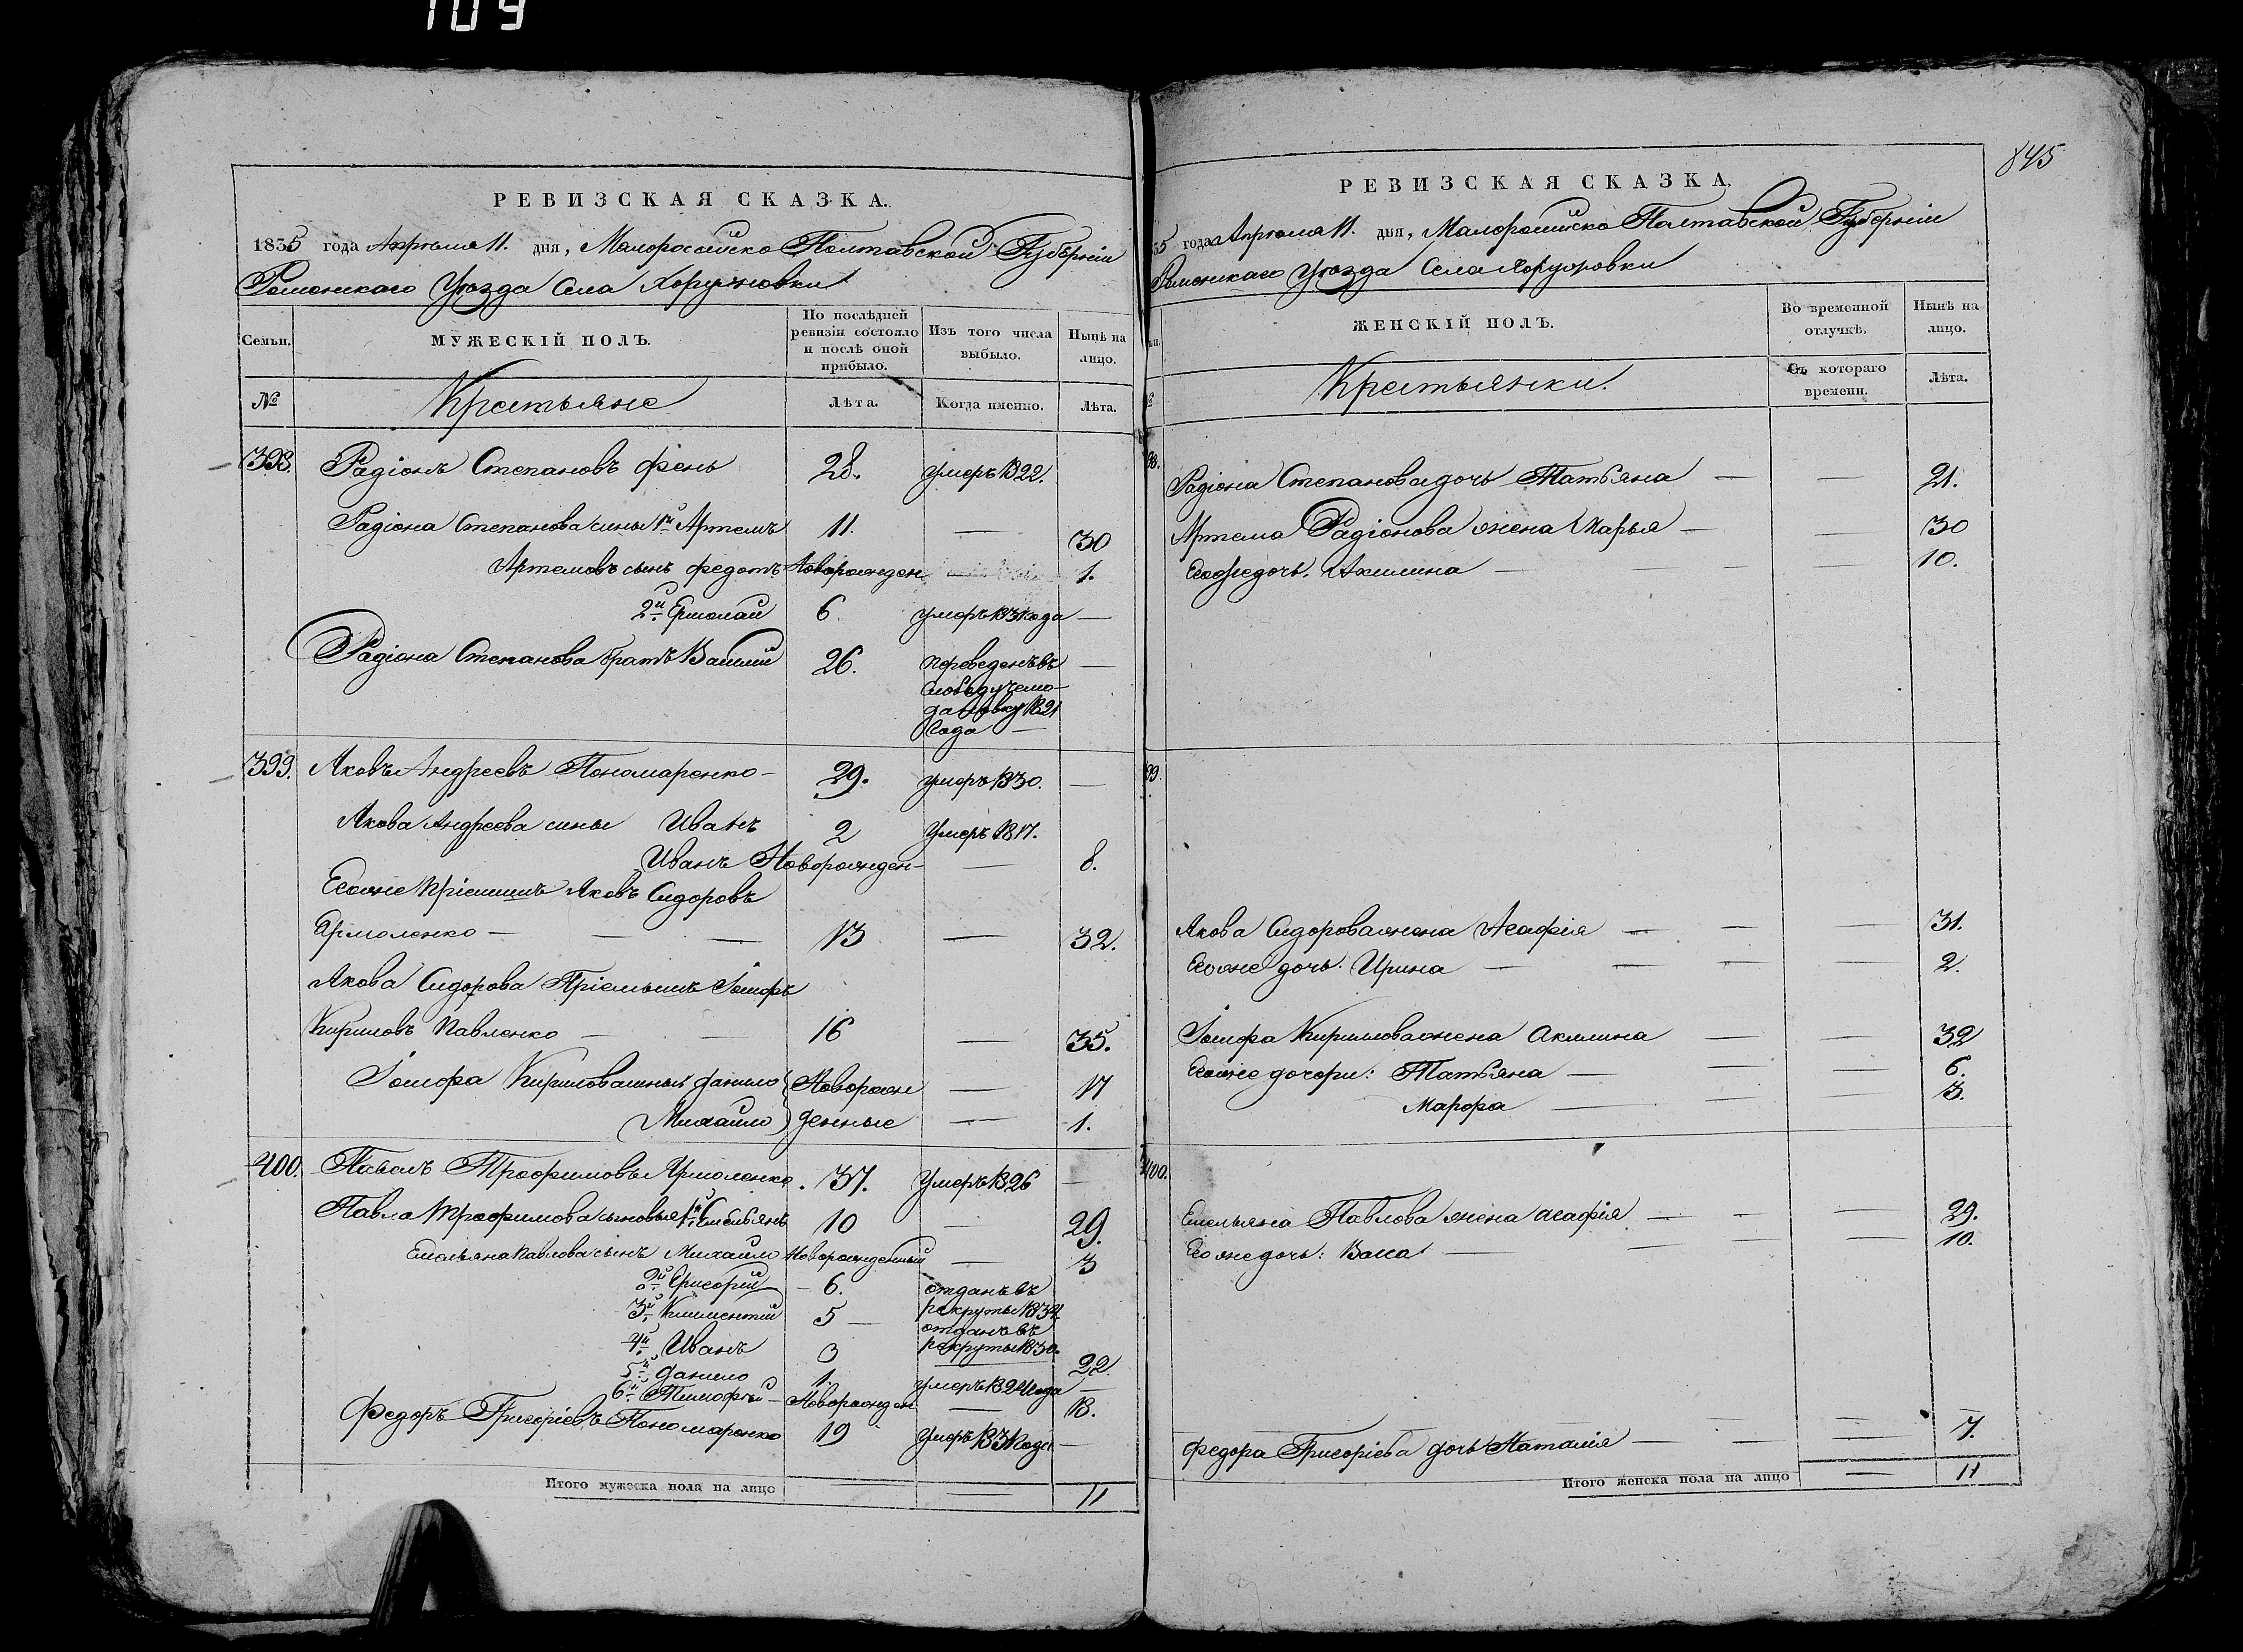 109
845
РЕВИЗСКАЯ СКАЗКА.
1835 года Апреля 11. дня, Малоросийско Полтавской Губерніи
Роменскаго Уезда Села Хоружовки
Семьи.
МУЖЕСКІЙ ПОЛЪ.
По послѣдней ревизіи состояло и послѣ оной прибыло.
Изъ того числа выбыло.
Нынѣ на лицо.
№
Крестьяне
Лѣта.
Когда именно.
Лѣта.
398. Радіонъ Степановъ Фень 28. умеръ 1822.
Радіона Степанова сины 1й Артемъ 11. — 30
Артемовъ сынъ Федотъ Новорожден — 1.
2й Ермолай 6 умеръ 1831 года —
Радіона Степанова братъ Василий 26. переведенъ въ —
слободу
1821
года —
399. Яковъ Андреевъ Пономаренко - 29. умеръ 1830. —
Якова Андреева сины Иванъ 2 Умеръ 1817.
Иванъ Новорожден — 8.
Егоже Пріемишъ Яковъ Сидоровъ
Ярмоленко — — — 13 — 32.
Якова Сидорова Пріемышъ Іосифъ
Кириловъ Павленко — — 16 — 35.
Іосифа Кирилова сины Данило Новорож — 17
Михайло денные — 1.
400. Павелъ Трофимовъ Ярмоленко. 37. Умеръ 1826 —
Павла Трофимова сыновья 1й Емельянъ 10 — 29.
Емельяна Павлова сынъ Михайло Новорожденный — 3
2й Григорій — 6. отданъ въ
3й Климентий 5 — рекруты 1834.
отданъ въ
4й Иванъ 3 рекруты 1830. 22.
5й Данило 1. умеръ 1824 года —
6й Тимофѣй — Новорожден — 13.
Федоръ Григоріевъ Пономаренко 19 умеръ 1831 года —
Итого мужеска пола на лицо — — 11
РЕВИЗСКАЯ СКАЗКА.
35 года Апреля 11. дня, Малоросийско Полтавской Губерніи
Роменскаго Уезда Села Хоружовки
ЖЕНСКІЙ ПОЛЪ.
Во временной отлучкѣ.
Нынѣ на лицо.
Крестьянки.
Съ котораго времени.
Лѣта.
98. Радіона Степанова дочь Татьяна — — 21.
Артема Радіонова жена Марья — — 30
Егоже дочь. Акилина — — — 10.
99.
Якова Сидорова жена Агафія — — — 31.
Егоже дочь. Ирина — — — — 2.
Іосифа Кирилова жена Акилина — — 32
Егоже дочери: Татьяна — — — 6.
Марфа — — — 3.
400.
Емельяна Павлова жена Агафія — — — 29.
Егоже дочь: Васа — — — 10.
Федора Григоріева дочь Наталія — — — 7.
Итого женска пола на лицо — 11